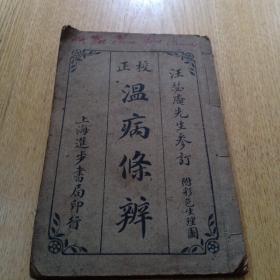 校正
汪瑟庵先生參訂
附彩色生理圖
溫病條辨
上海進步書局印行